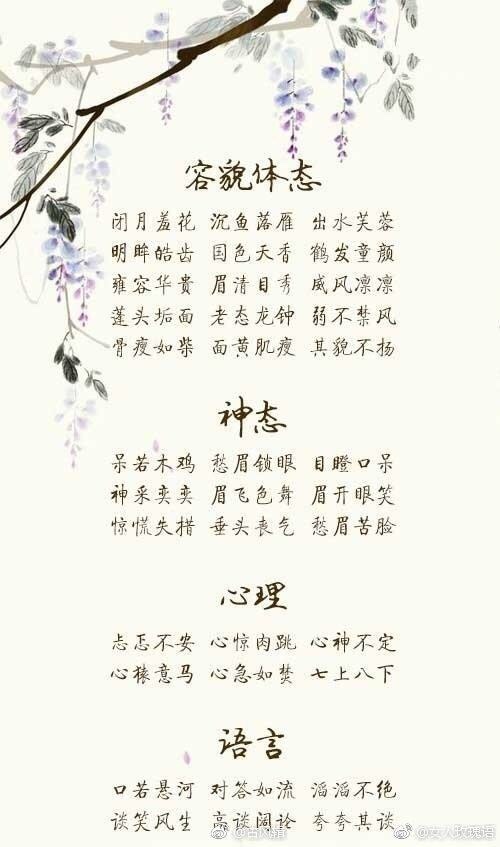 容貌体态
闭月羞花 沉鱼落雁 出水芙蓉
明眸皓齿 国色天香 鹤发童颜
雍容华贵 眉清目秀 威风凛凛
蓬头垢面 老态龙钟 弱不禁风
骨瘦如柴 面黄肌瘦 其貌不扬
神态
呆若木鸡 愁眉锁眼 目瞪口呆
神采奕奕 眉飞色舞 眉开眼笑
惊慌失措 垂头丧气 愁眉苦脸
心理
忐忑不安 心惊肉跳 心神不定
心猿意马 心急如焚 七上八下
语言
口若悬河 对答如流 滔滔不绝
谈笑风生 高谈阔论 夸夸其谈
@女人玫瑰语